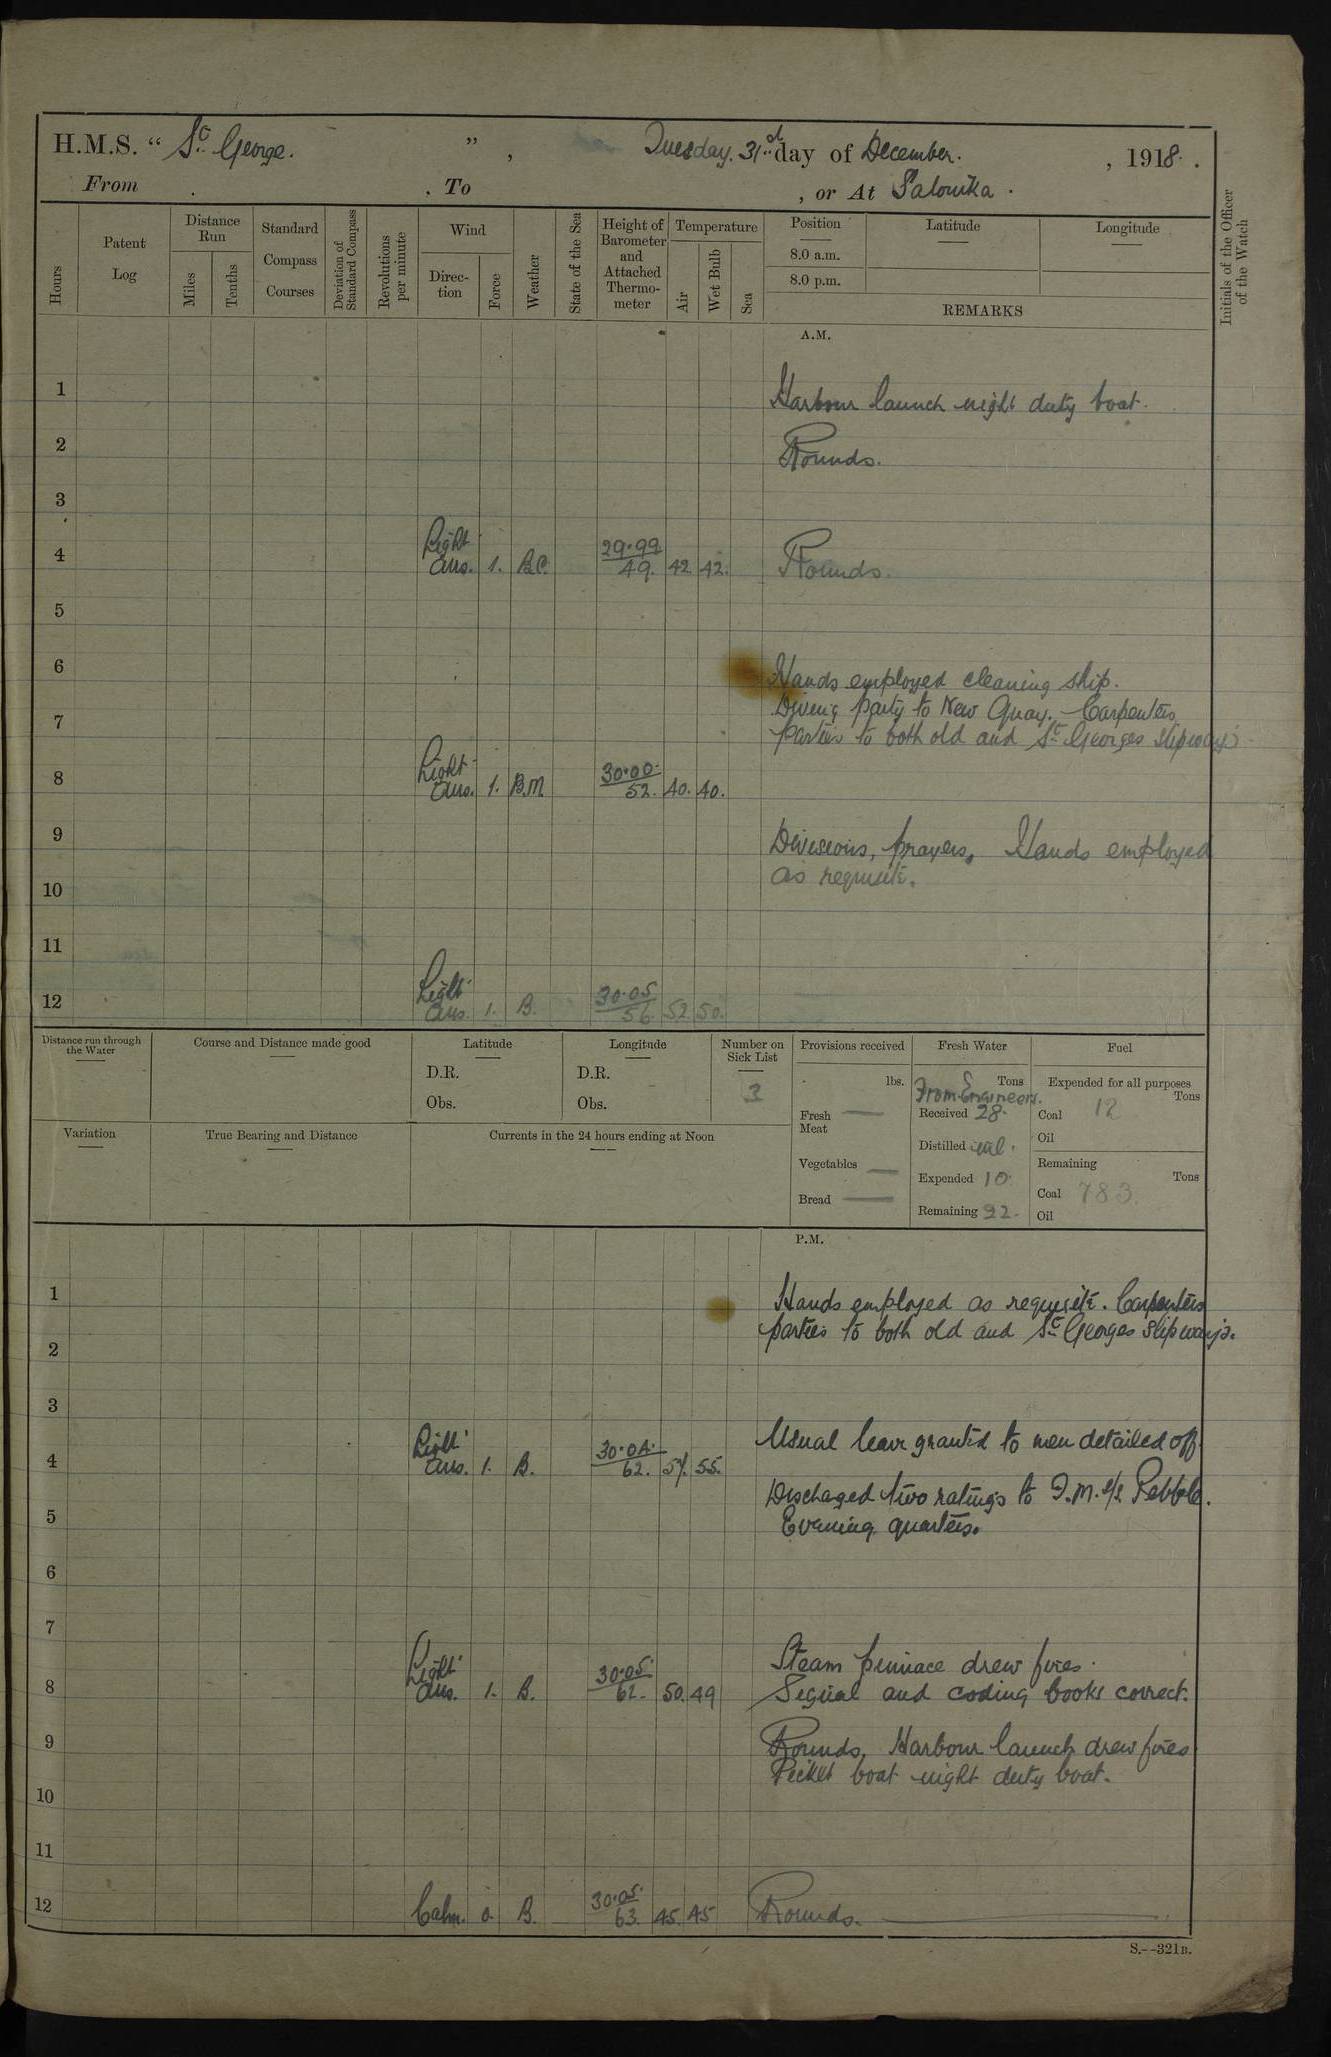 H.M.S. “ St George. ” , Tuesday. 31st day of December. , 1918 .
From . To , or At Salonika .
Hours
Patent Log
Distance Run
Miles
Tenths
Standard Compass Courses
Deviation of Standard Compass
Revolutions per minute
Wind
Direction
Force
Weather
State of the Sea
Height of Barometer and Attached Thermometer
Temperature
Air
Wet Bulb
Sea
Position
8.0 a.m.
8.0 p.m.
Latitude
Longitude
REMARKS
Initials of the Officer of the Watch
A.M.
1 Harbour launch night duty boat.
2 Rounds.
3
4 Light airs. 1. B.C. 29.99 49. 42 42. Rounds.
5
6 Hands employed cleaning ship.
Diving party to New Quay. Carpenters
7 parties to both old and St Georges slipways
8 Light airs. 1. B.M 30.00 52. 40. 40.
9 Divisions, prayers, Hands employed
as requisite.
10
11
12 Light airs. 1. B. 30.05 56 52 50.
Distance run through the Water
Course and Distance made good
Latitude
D.R.
Obs.
Longitude
D.R.
Obs.
Number on Sick List
3
Provisions received
lbs.
Fresh Meat —
Vegetables —
Bread —
Fresh Water
Tons
From Engineers.
Received 28.
Distilled nil.
Expended 10.
Remaining 92.
Fuel
Expended for all purposes
Tons
Coal 12
Oil
Remaining
Tons
Coal 783.
Oil
Variation
True Bearing and Distance
Currents in the 24 hours ending at Noon
P.M.
1 Hands employed as requisite. Carpenters
parties to both old and St Georges slipways.
2
3
Usual leave granted to men detailed off.
4 Light airs. 1. B. 30.04. 62. 57. 55.
Discharged two ratings to F.M. s/s Pebble.
5 Evening quarters.
6
7
Steam pinnace drew fires.
8 Light airs. 1. B. 30.05. 62. 50. 49 Signal and coding books correct.
9 Rounds, Harbour launch drew fires
Picket boat night duty boat.
10
11
12 Calm. 0. B. 30.05. 63. 45 45 Rounds.
S.--321B.